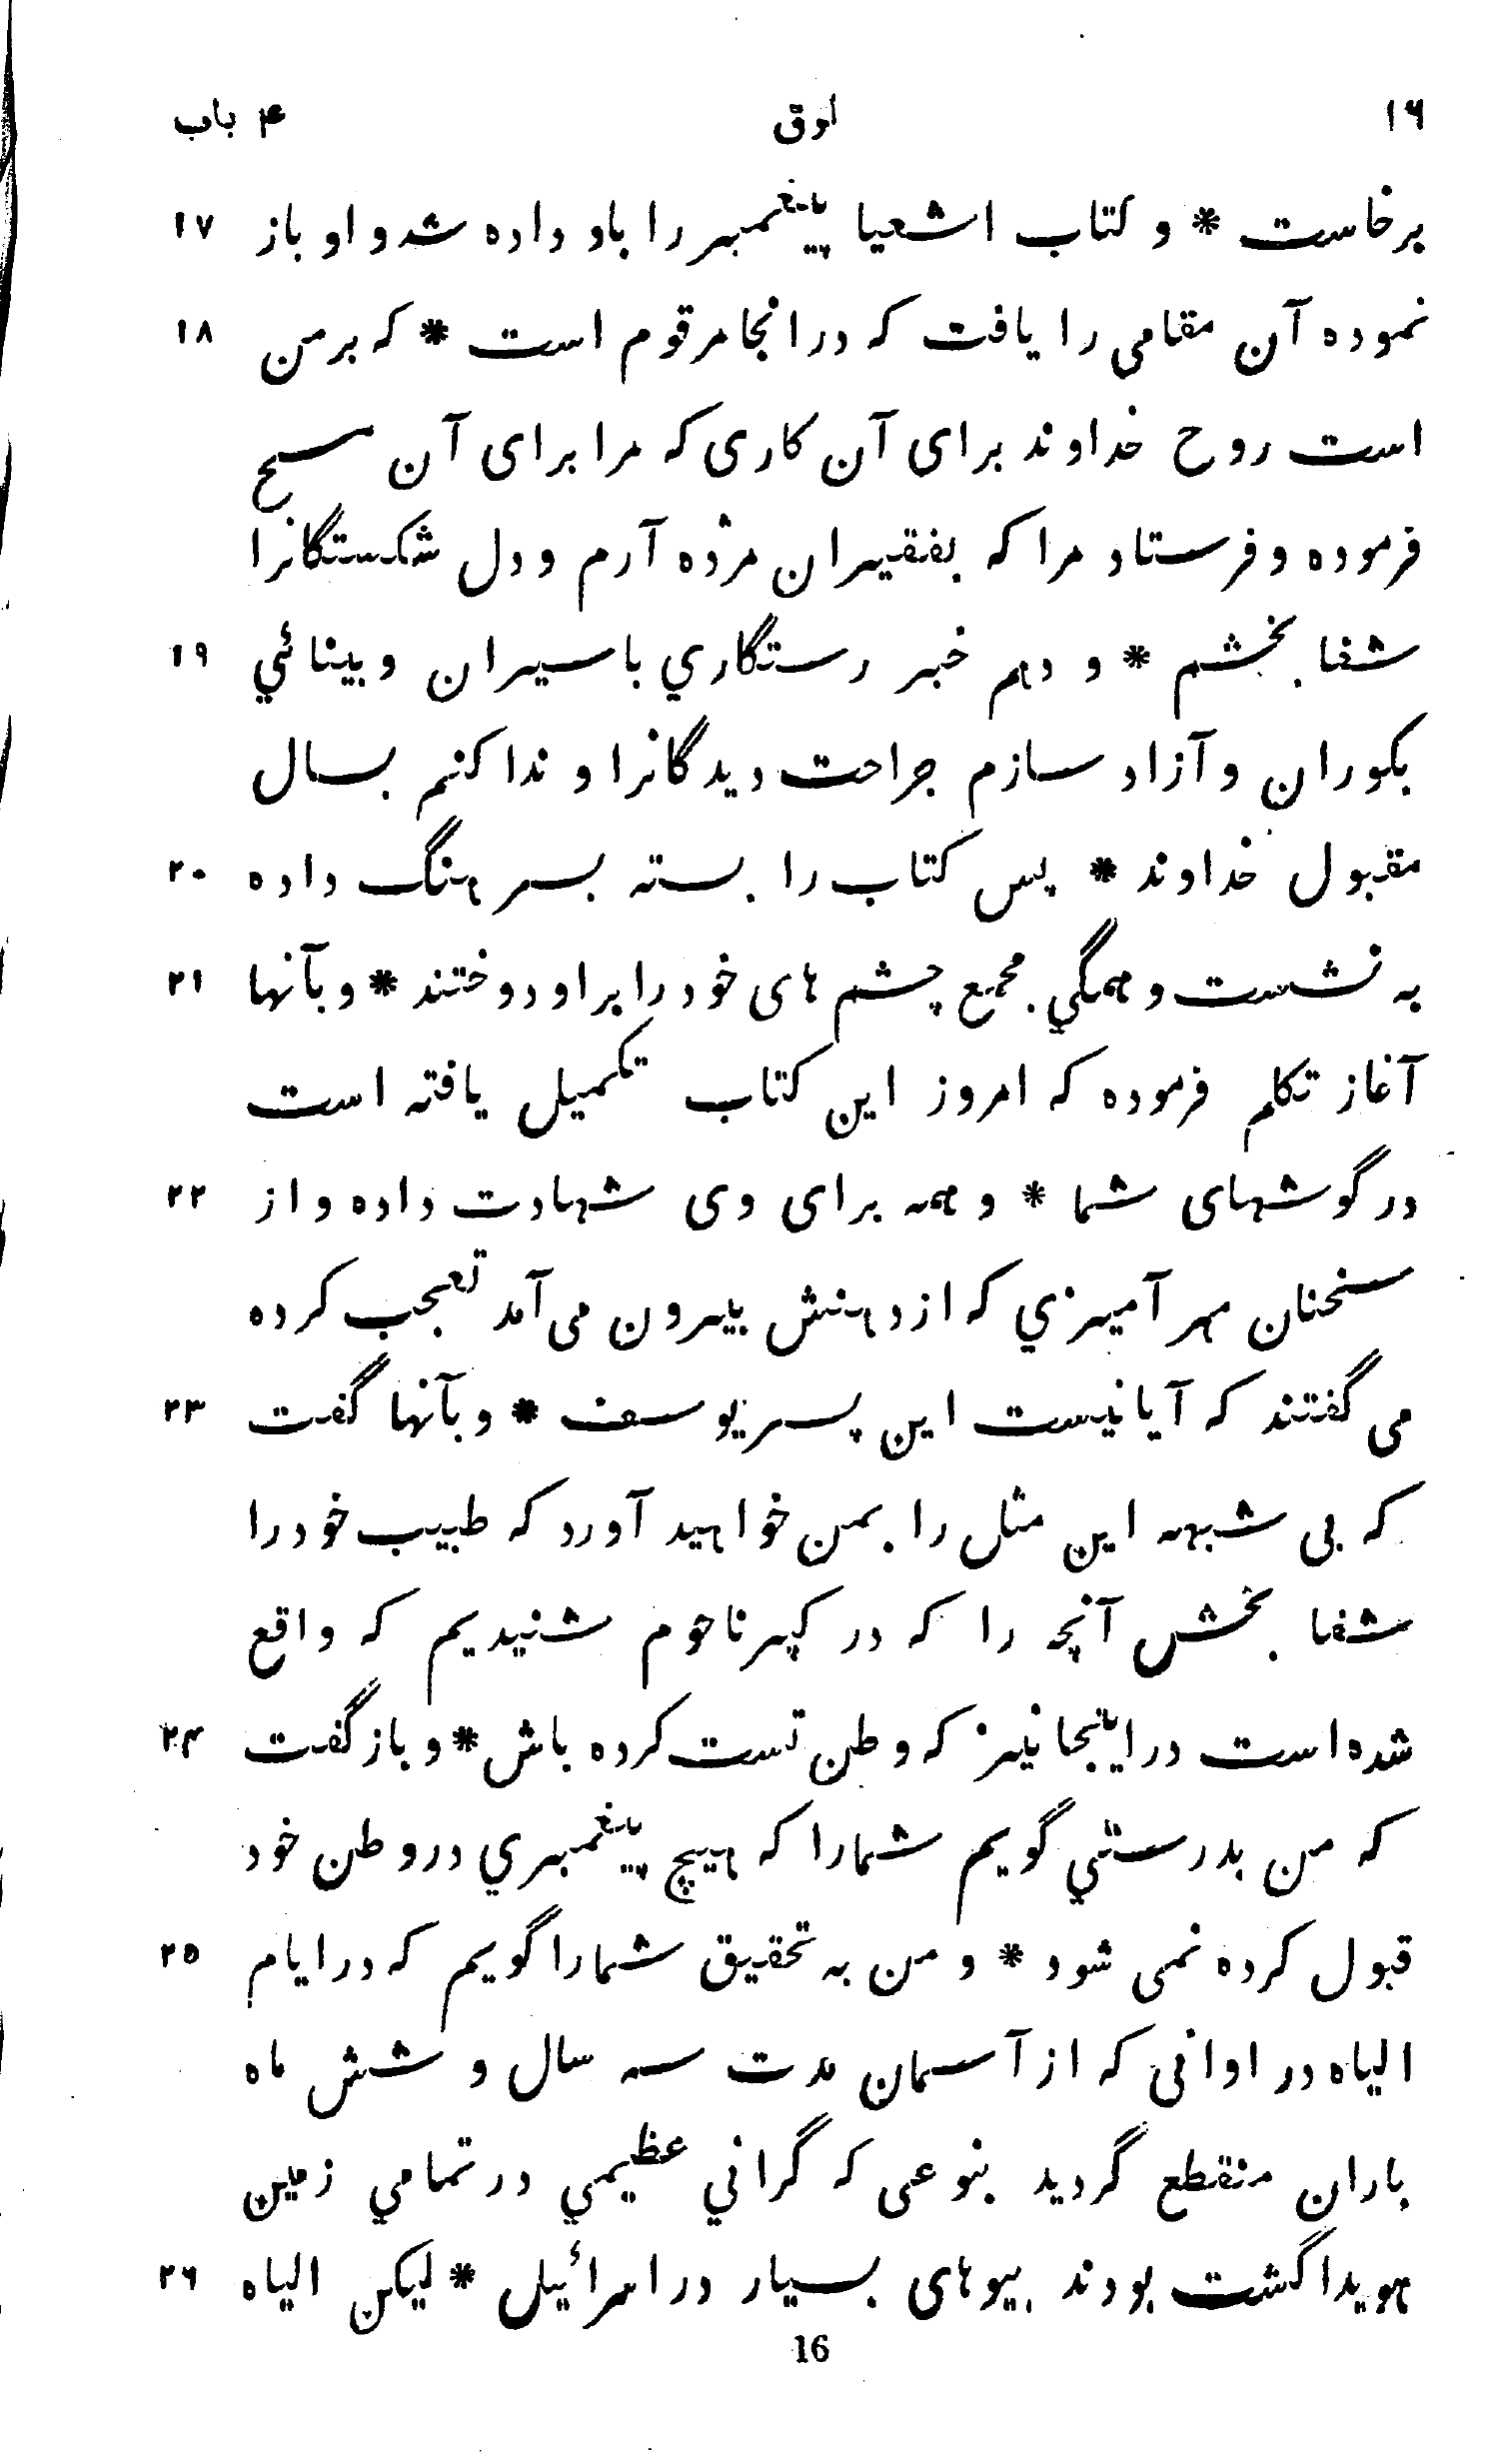 ۱۶ لوق ۴ باب
برخاست * و کتاب اشعیا پیغمبر را باو داده شد و او باز ۱۷
نموده آن مقامی را یافت که در انجا مرقوم است * که بر من ۱۸
است روح خداوند برای آن کاری که مرا برای آن مسح
فرموده و فرستاد مرا که بفقیران مژده آرم و دل شکستگانرا
شفا بخشم * و دهم خبر رستگاري باسیران و بینائي ۱۹
بکوران و آزاد سازم جراحت دیدگانرا و ندا کنم بسال
مقبول خداوند * پس کتاب را بسته بسرهنگ داده ۲۰
به نشست و همگي مجمع چشم های خود را بر او دوختند * و بآنها ۲۱
آغاز تکلم فرموده که امروز این کتاب تکمیل یافته است
در گوشهای شما * و همه برای وی شهادت داده و از ۲۲
سخنان مهر آمیزي که از دهنش بیرون می آمد تعجب کرده
می گفتند که آیا نیست این پسر یوسف * و بآنها گفت ۲۳
که بی شبهه این مثل را بمن خواهید آورد که طبیب خود را
شفا بخش آنچه را که در کپرناحوم شنیدیم که واقع
شده است در اینجا نیز که وطن تست کرده باش * و باز گفت ۲۴
که من بدرستي گویم شمارا که هیچ پیغمبري در وطن خود
قبول کرده نمی شود * و من به تحقیق شمارا گویم که در ایام ۲۵
الیاه در اوانی که از آسمان مدت سه سال و شش ماه
باران منقطع گردید بنوعی که گراني عظیمي در تمامي زمین
هویدا گشت بودند بیوهای بسیار در اسرائیل * لیکن الیاه ۲۶
16